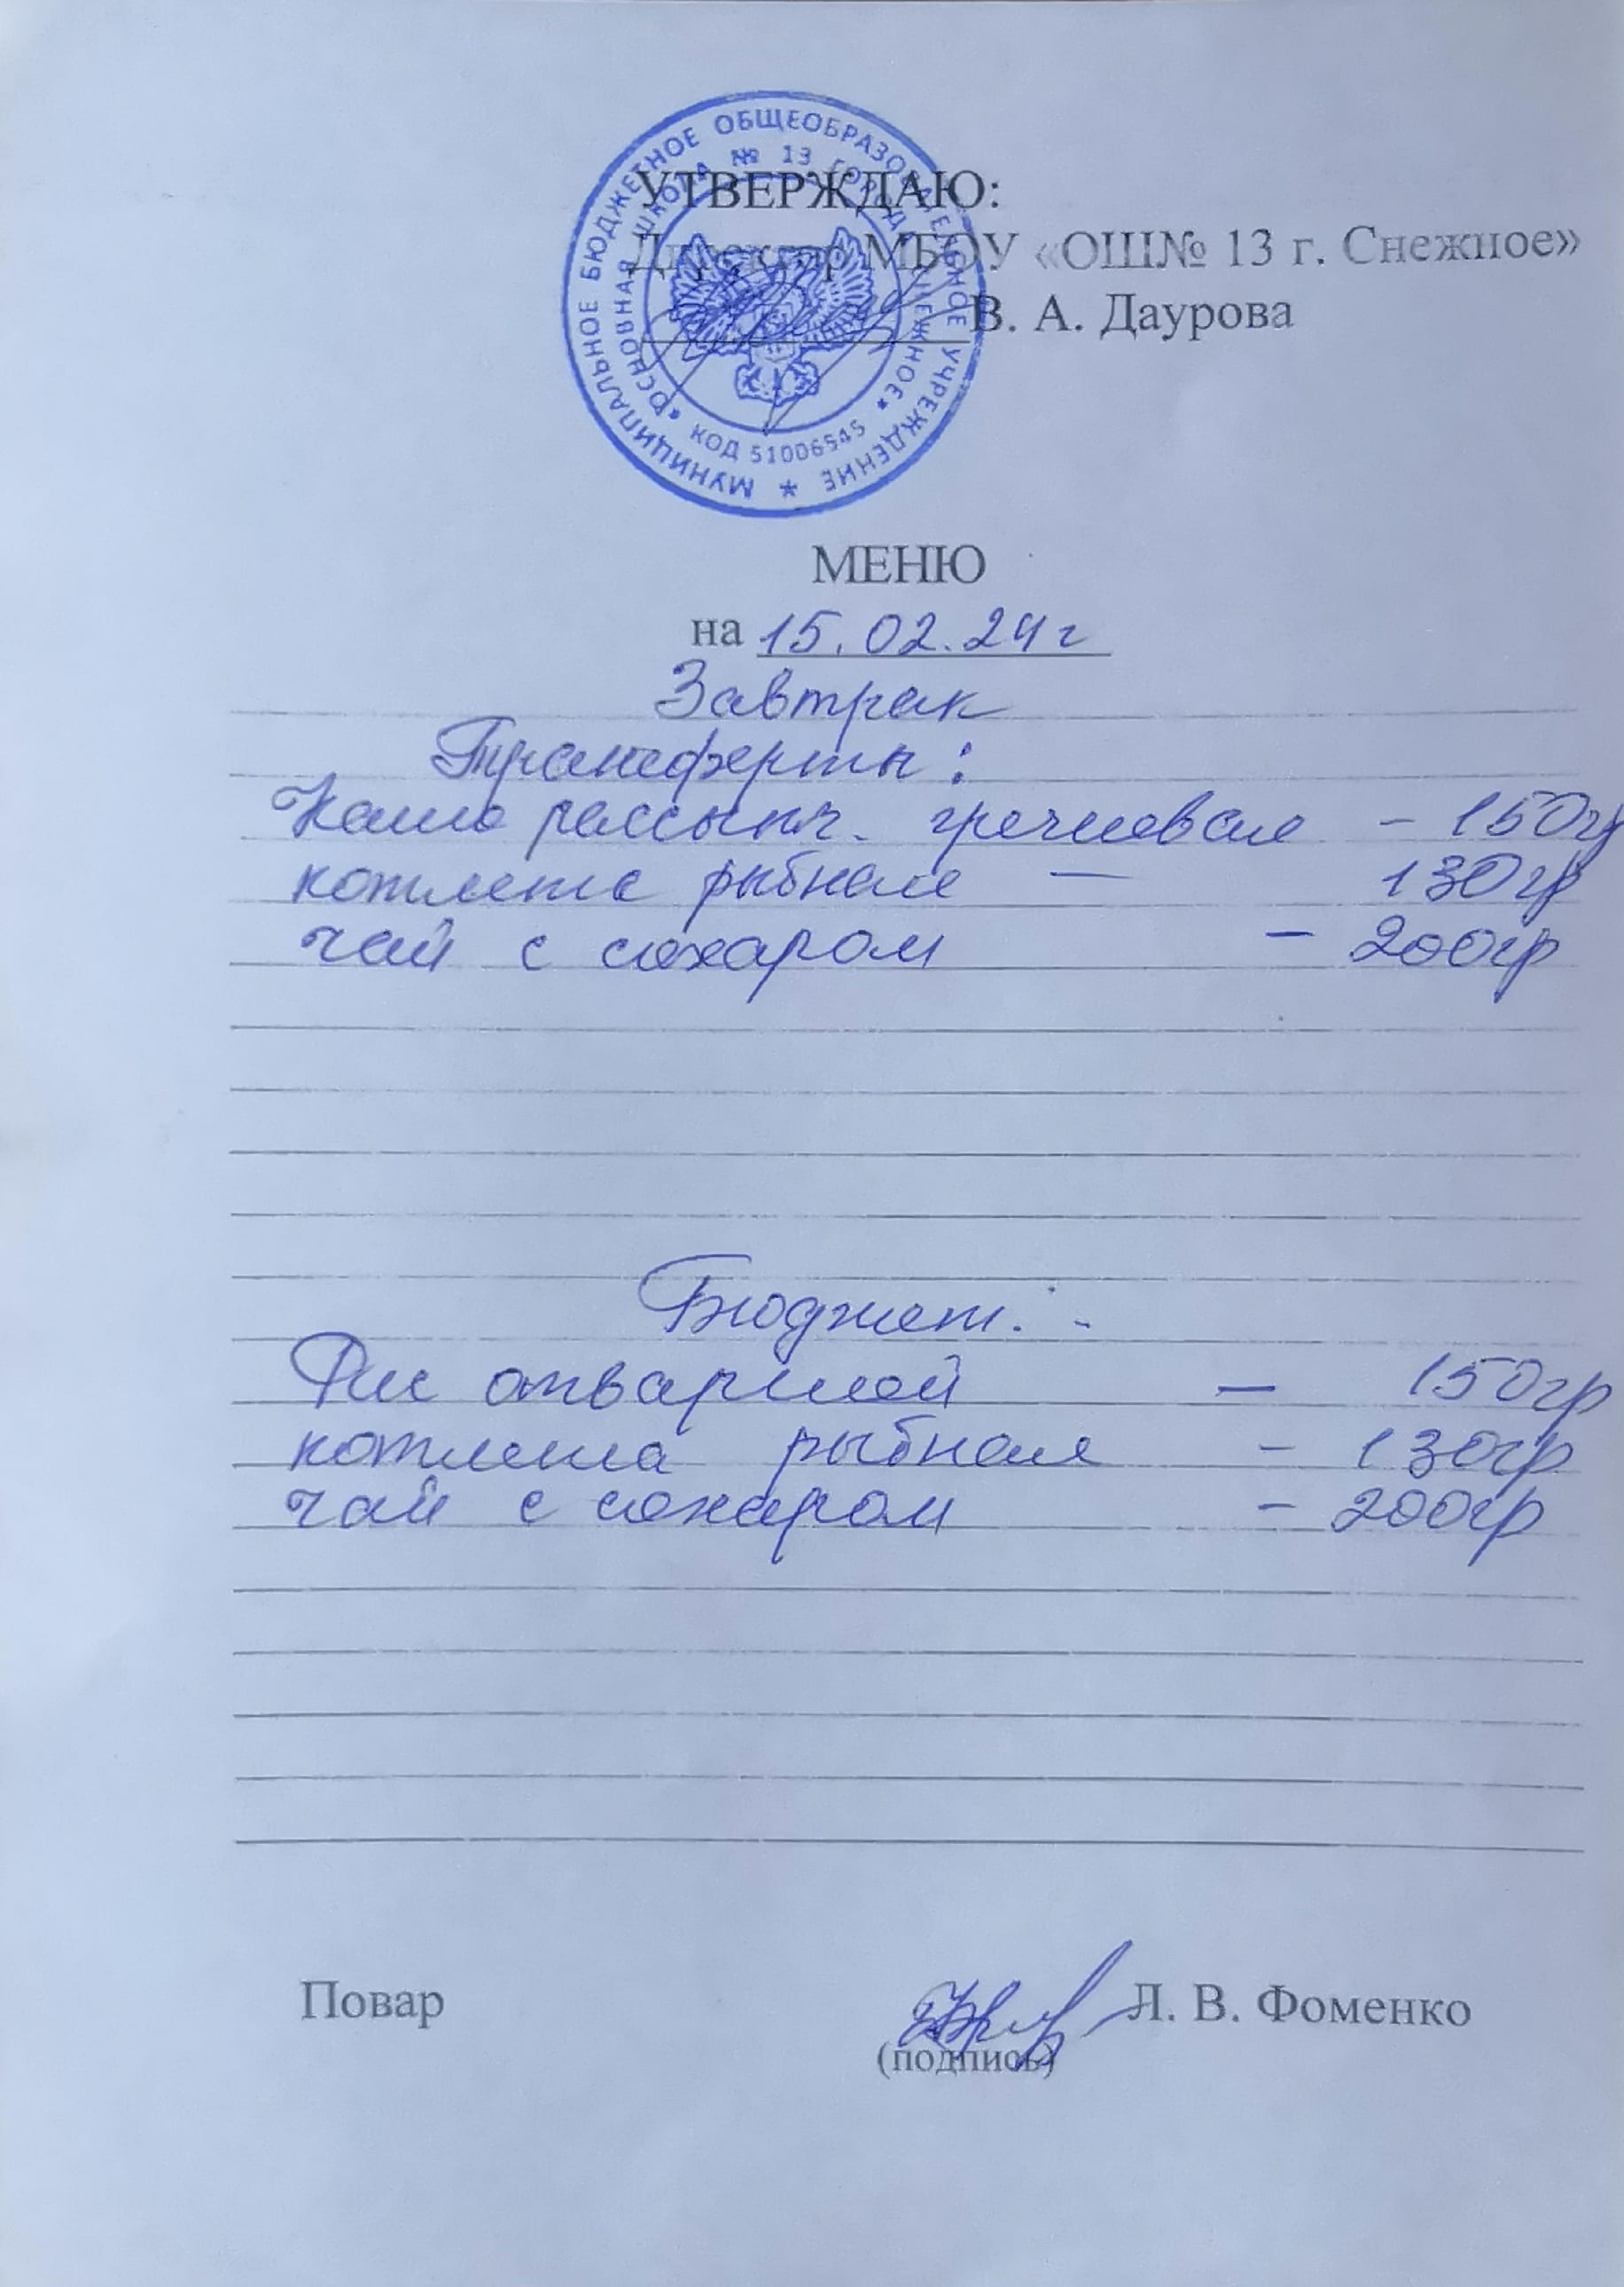 МУНИЦИПАЛЬНОЕ БЮДЖЕТНОЕ ОБЩЕОБРАЗОВАТЕЛЬНОЕ УЧРЕЖДЕНИЕ *
«ОСНОВНАЯ ШКОЛА № 13 ГОРОДА СНЕЖНОЕ»
КОД 51006545
УТВЕРЖДАЮ:
Директор МБОУ «ОШ№ 13 г. Снежное»
В. А. Даурова
МЕНЮ
на 15.02.24г
Завтрак
Трансферты:
Каша рассыпч. гречневая - 150гр
котлета рыбная — 130гр
чай с сахаром - 200гр
Бюджет: -
Рис отварной — 150гр
котлета рыбная - 130гр
чай с сахаром - 200гр
Повар Л. В. Фоменко
(подпись)